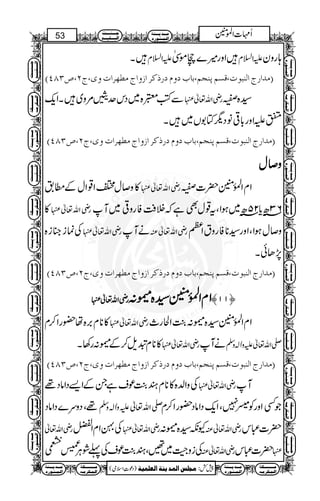 اُمہات المؤمنین
53
ہارون علیہ السلام ہیں اور میرے چچا موسیٰ علیہ السلام ہیں۔
(مدارج النبوت،قسم پنجم،باب دوم درذکر ازواج مطہرات وی،ج۲،ص۴۸۳)
سیدہ صفیہ رضی اللہ تعالیٰ عنہا سے کتب معتبرہ میں دس حدیثیں مروی ہیں۔ ایک
متفق علیہ اور باقی نو دیگر کتابوں میں ہیں۔
(مدارج النبوت،قسم پنجم،باب دوم درذکر ازواج مطہرات وی،ج۲،ص۴۸۳)
وصال
ام المؤمنین حضرت صفیہ رضی اللہ تعالیٰ عنہا کا وصال مختلف اقوال کے مطابق
۳۶ھ یا ۵۲ھ میں ہوا، یہ قول بھی ہے کہ خلافت فاروقی میں آپ رضی اللہ تعالیٰ عنہا کا
وصال ہوا، اور سیدنا فاروق اعظم رضی اللہ تعالیٰ عنہ نے آپ رضی اللہ تعالیٰ عنہا کی نماز جنازہ
پڑھائی۔
(مدارج النبوت،قسم پنجم،باب دوم درذکر ازواج مطہرات وی،ج۲،ص۴۸۳)
﴿۱۱﴾ ام المؤمنین سیدہ میمونہ رضی اللہ تعالیٰ عنہا
ام المؤمنین سیدہ میمونہ بنت الحارث رضی اللہ تعالیٰ عنہا کا نام برہ تھا حضور اکرم
صلی اللہ تعالیٰ علیہ واٰلہٖ وسلم نے آپ رضی اللہ تعالیٰ عنہا کا نام تبدیل کر کے میمونہ رکھا۔
(مدارج النبوت،قسم پنجم،باب دوم درذکر ازواج مطہرات وی،ج۲،ص۴۸۳)
آپ رضی اللہ تعالیٰ عنہا کی والدہ کا نام ہند بنت عوف ہے جن کے ایسے داماد تھے
جو کسی اور کو میسر نہیں، ایک داماد حضور اکرم صلی اللہ تعالیٰ علیہ واٰلہٖ وسلم تھے، دوسرے داماد
حضرت عباس رضی اللہ تعالیٰ عنہ کیونکہ سیدہ میمونہ رضی اللہ تعالیٰ عنہا کی بہن ام الفضل رضی اللہ تعالیٰ
عنہا حضرت عباس رضی اللہ تعالیٰ عنہ کی زوجیت میں تھیں، ہند بنت عوف کی پہلے شوہر عمیس خثعمی
پیش کش: مجلس المدينة العلمية (دعوت اسلامی)